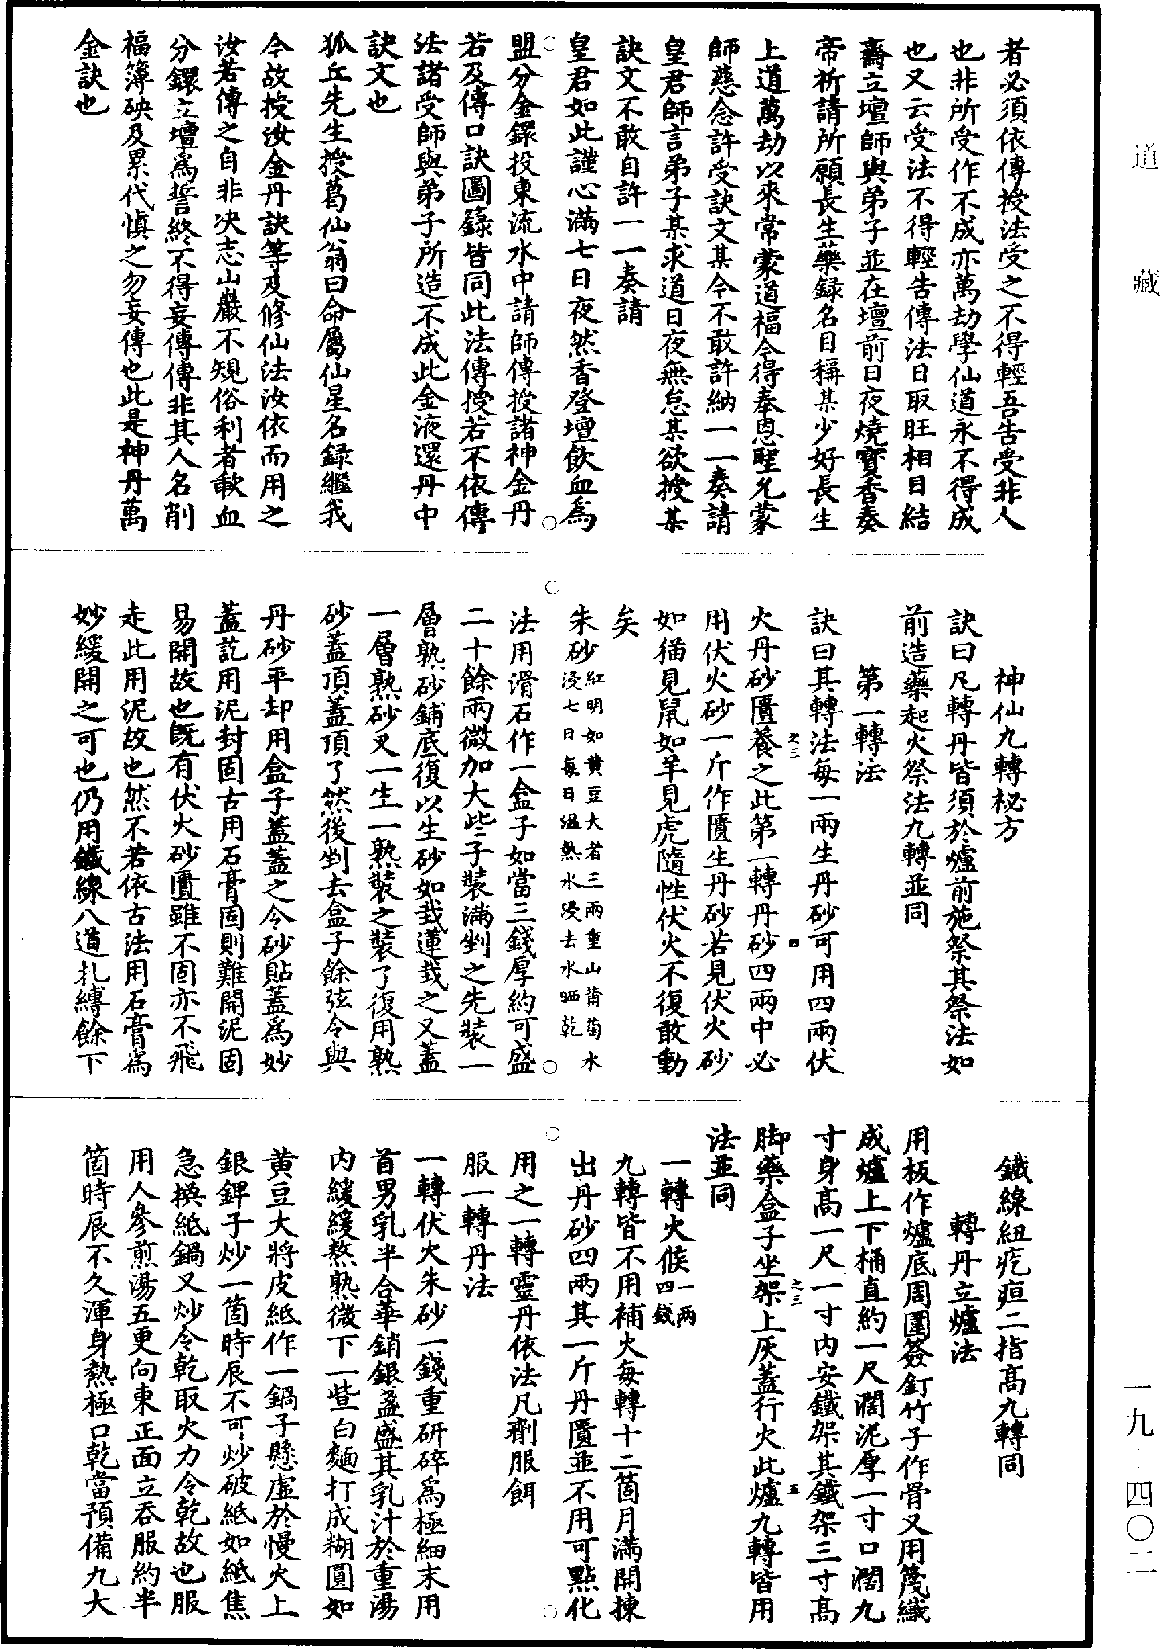 道藏
者必須依傳授法受之不得輕吾告受非人
也非所受作不成亦萬劫學仙道永不得成
也又云受法不得輕告傳法日取旺相日結
齋立壇師與弟子並在壇前日夜燒寶香奏
帝祈請所願長生藥録名目稱某少好長生
上道萬劫以來常蒙道福今得奉恩聖允蒙
師慈念許受訣文某今不敢許納一一奏請
皇君師言弟子某求道日夜無怠某欲授某
訣文不敢自許一一奏請
皇君如此謹心滿七日夜然香登壇飲血為
盟分金鐶投東流水中請師傳授諸神金丹
若及傳口訣圖籙皆同此法傳授若不依傳
法諸受師與弟子所造不成此金液還丹中
訣文也
狐丘先生授葛仙翁曰命屬仙星名録繼我
今故授汝金丹訣等及修仙法汝依而用之
汝若傳之自非決志山巖不規俗利者歃血
分鐶立壇為誓終不得妄傳傳非其人名削
福簿殃及累代慎之勿妄傳也此是神丹萬
金訣也
神仙九轉秘方
訣曰凡轉丹皆須於爐前施祭其祭法如
前造藥起火祭法九轉並同
第一轉法
訣曰其轉法每一兩生丹砂可用四兩伏
火丹砂匱養之此第一轉丹砂四兩中必
用伏火砂一斤作匱生丹砂若見伏火砂
如猫見鼠如羊見虎隨性伏火不復敢動
矣
朱砂紅明如黄豆大者三兩重山葡萄水浸七日每日溫熱水浸去水晒乾
法用滑石作一盒子如當三錢厚約可盛
二十餘兩微加大些子裝滿剉之先裝一
層熟砂鋪底復以生砂如栽蓮栽之又蓋
一層熟砂又一生一熟裝之裝了復用熟
砂蓋頂蓋頂了然後剉去盒子餘弦令與
丹砂平却用盒子蓋蓋之令砂貼蓋為妙
蓋訖用泥封固古用石膏固則難開泥固
易開故也既有伏火砂匱雖不固亦不飛
走此用泥故也然不若依古法用石膏為
妙緩開之可也仍用鐵線八道扎縛餘下
鐵線紐疙疸二指高九轉同
轉丹立爐法
用板作爐底周圍簽釘竹子作骨又用篾織
成爐上下桶直約一尺闊泥厚一寸口闊九
寸身高一尺一寸內安鐵架其鐵架三寸高
脚藥盒子坐架上灰蓋行火此爐九轉皆用
法並同
一轉火候一兩四錢
九轉皆不用補火每轉十二箇月滿開揀
出丹砂四兩其一斤丹匱並不用可點化
用之一轉靈丹依法凡劑服餌
服一轉丹法
一轉伏火朱砂一錢重研碎為極細末用
首男乳半合華銷銀盞盛其乳汁於重湯
內緩緩熬熟微下一些白麵打成糊圓如
黄豆大將皮紙作一鍋子懸虛於慢火上
銀鎞子炒一箇時辰不可炒破紙如紙焦
急換紙鍋又炒令乾取火力令乾故也服
用人參煎湯五更向東正面立吞服約半
箇時辰不久渾身熱極口乾當預備九大
一九 四〇二